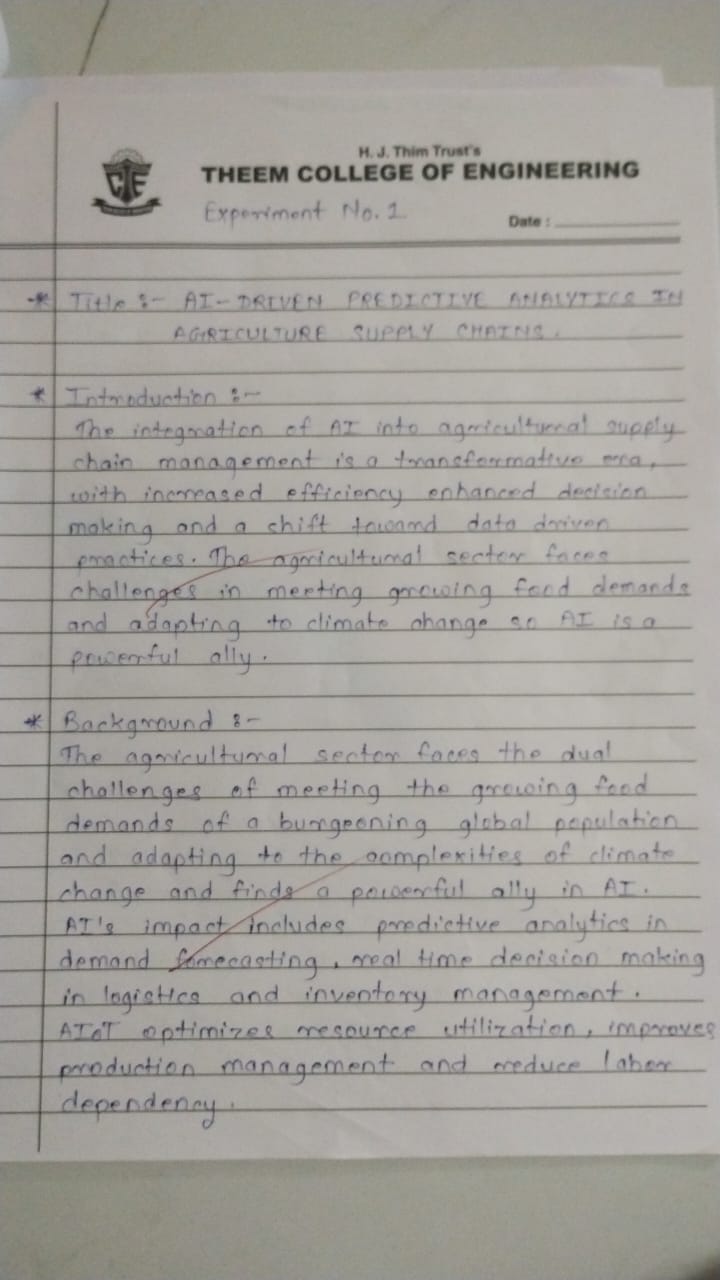 H. J. Thim Trust's
THEEM COLLEGE OF ENGINEERING
Experiment No. 1
Date :
* Title :- AI-DRIVEN PREDICTIVE ANALYTICS IN
AGRICULTURE SUPPLY CHAINS.
* Introduction :-
The integration of AI into agricultural supply
chain management is a transformative era,
with increased efficiency enhanced decision
making and a shift toward data driven
practices. The agricultural sector faces
challenges in meeting growing food demands
and adapting to climate change so AI is a
powerful ally.
* Background :-
The agricultural sector faces the dual
challenges of meeting the growing food
demands of a burgeoning global population
and adapting to the complexities of climate
change and finds a powerful ally in AI.
AI's impact includes predictive analytics in
demand forecasting, real time decision making
in logistics and inventory management.
AIoT optimizes resource utilization, improves
production management and reduce labor
dependency.